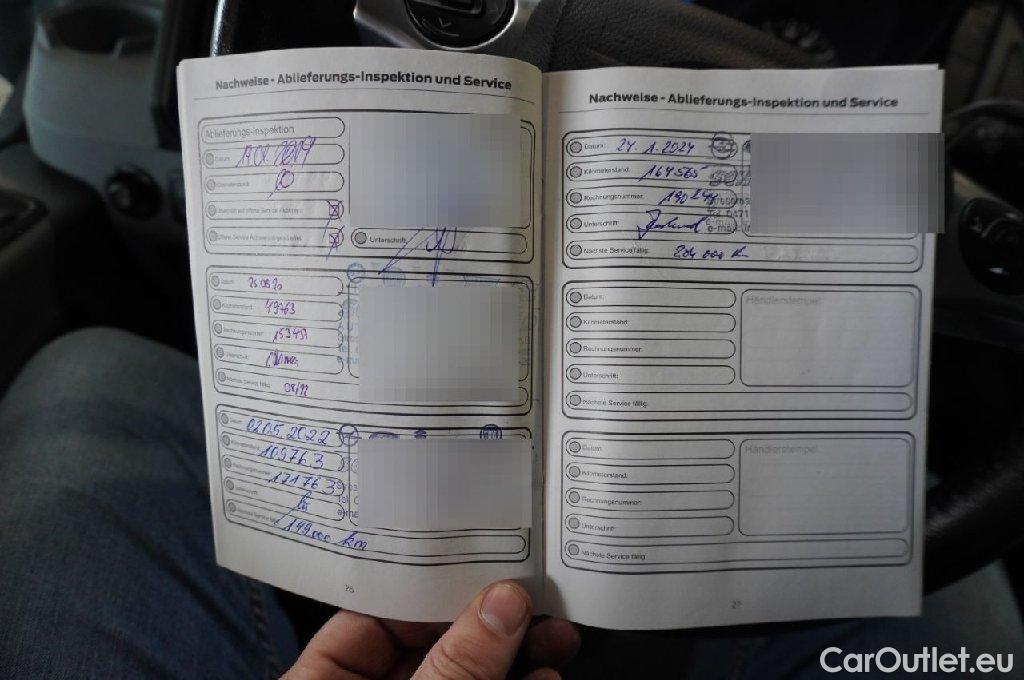 Nachweise - Ablieferungs-Inspektion und Service
Ablieferungs-Inspektion
Datum:
Kilometerstand:
Unterschrift:
Datum: 25.08.20
Kilometerstand: 49763
Rechnungsnummer: 153451
Unterschrift:
Nächste Service fällig: 08/22
Datum: 02.05.2022
Kilometerstand: 109763
Rechnungsnummer: 171763
Unterschrift:
Nächste Service fällig: 149000 km
26
Nachweise - Ablieferungs-Inspektion und Service
Datum: 24.1.2024
Kilometerstand: 164565
Rechnungsnummer:
Unterschrift:
Nächste Service fällig: 204000 k
Datum:
Händlerstempel
Kilometerstand:
Rechnungsnummer:
Unterschrift:
Nächste Service fällig:
Datum:
Händlerstempel
Kilometerstand:
Rechnungsnummer:
Unterschrift:
Nächste Service fällig:
27
CarOutlet.eu